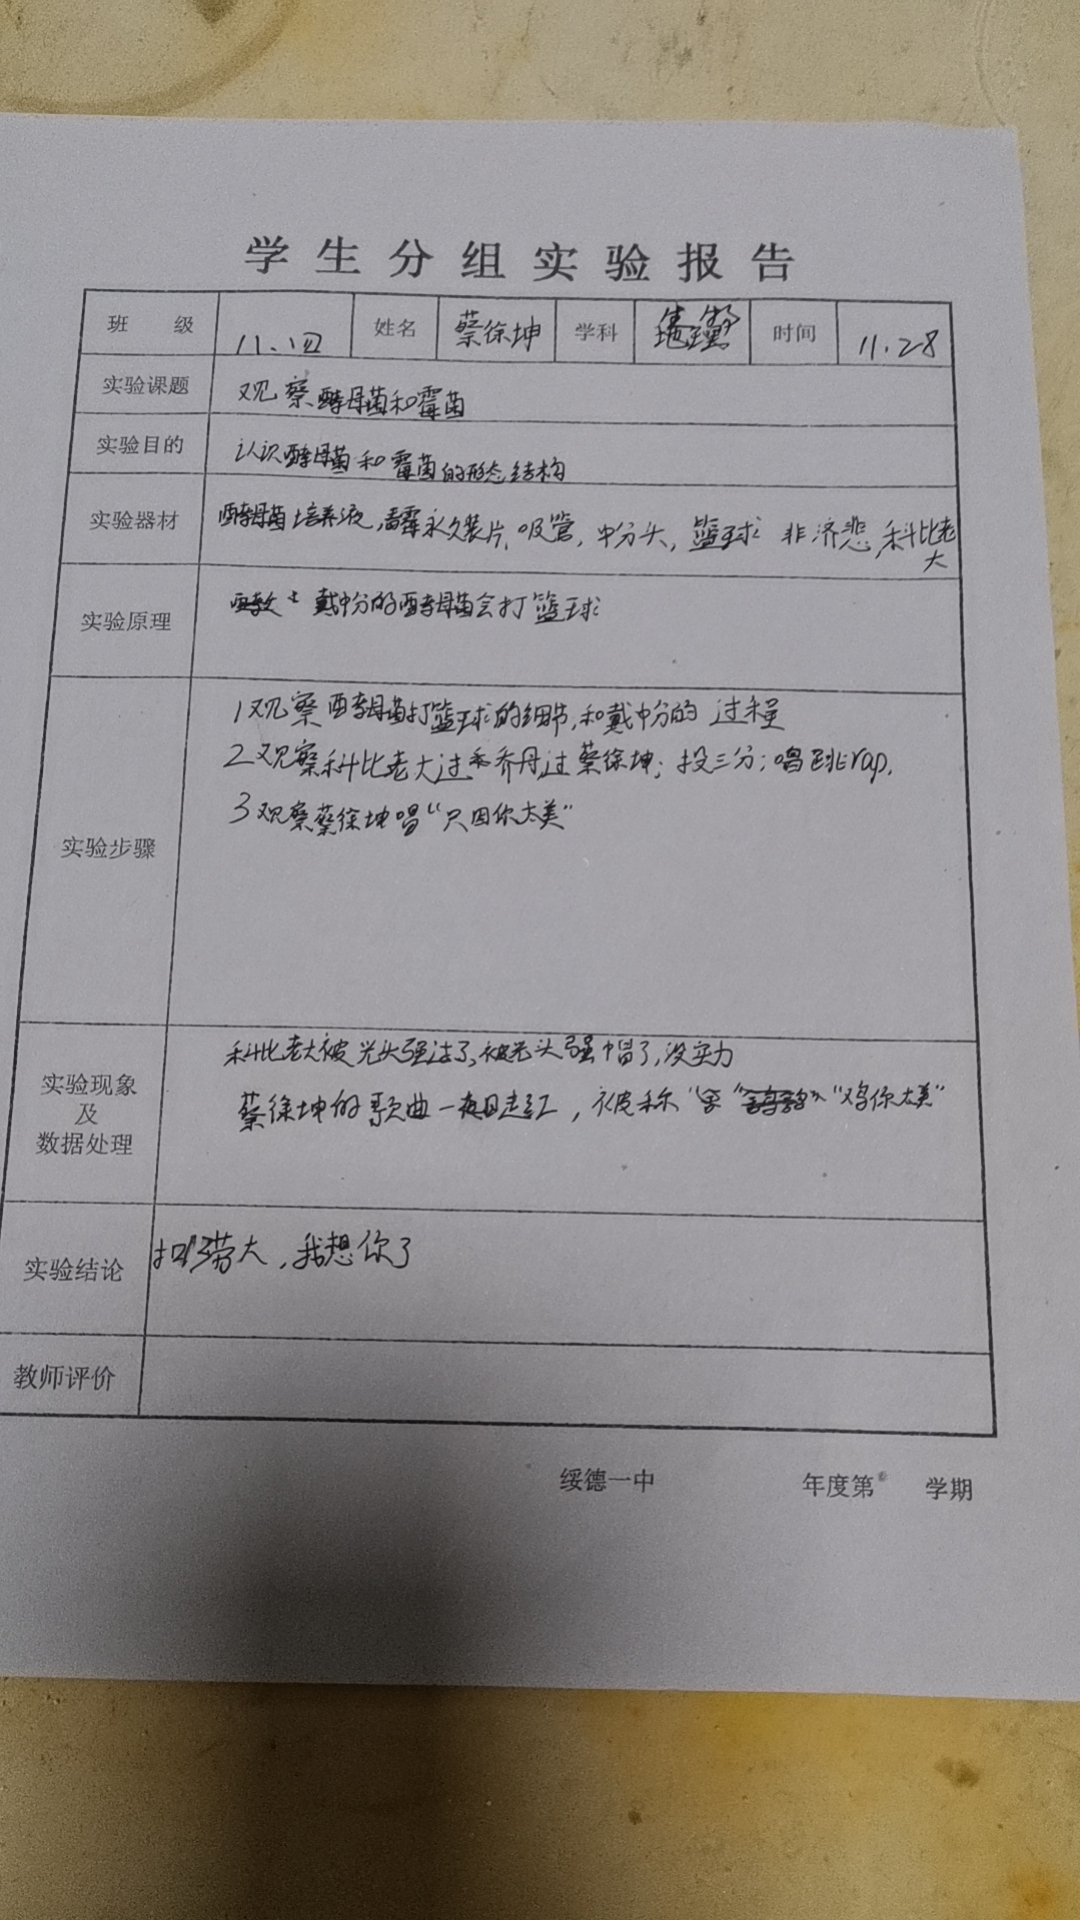 学生分组实验报告
班 级 11.四 姓名 蔡徐坤 学科 生物 时间 11.28
实验课题 观察酵母菌和霉菌
实验目的 认识酵母菌和霉菌的形态结构
实验器材 酵母菌培养液,青霉永久装片,吸管,中分头,篮球 非济悲,科比老
大
实验原理 戴中分的酵母菌会打篮球
实验步骤
1观察酵母菌打篮球的细节,和戴中分的过程
2观察科比老大过乔丹,过蔡徐坤;投三分;唱跳rap.
3观察蔡徐坤唱“只因你太美”
实验现象
及
数据处理
科比老大被光头强过了,被光头强帽了,没实力
蔡徐坤的歌曲一夜走红,被称 “鸡你太美”
实验结论 劳大,我想你了
教师评价
绥德一中 年度第 学期